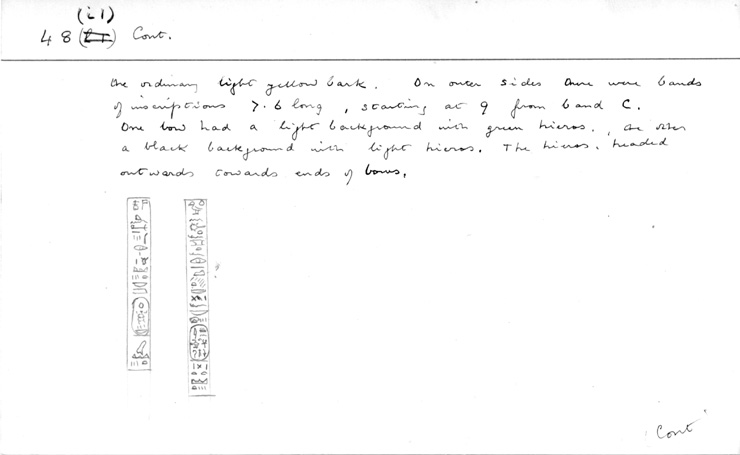 (i1)
48 Cont.
the ordinary light yellow bark. On outer sides there were bands
of inscriptions 7.6 long, starting at 9 from band C.
One bow had a light background with green hieros., the other
a black background with light hieros. The hieros. headed
outwards towards ends of bows.
Cont